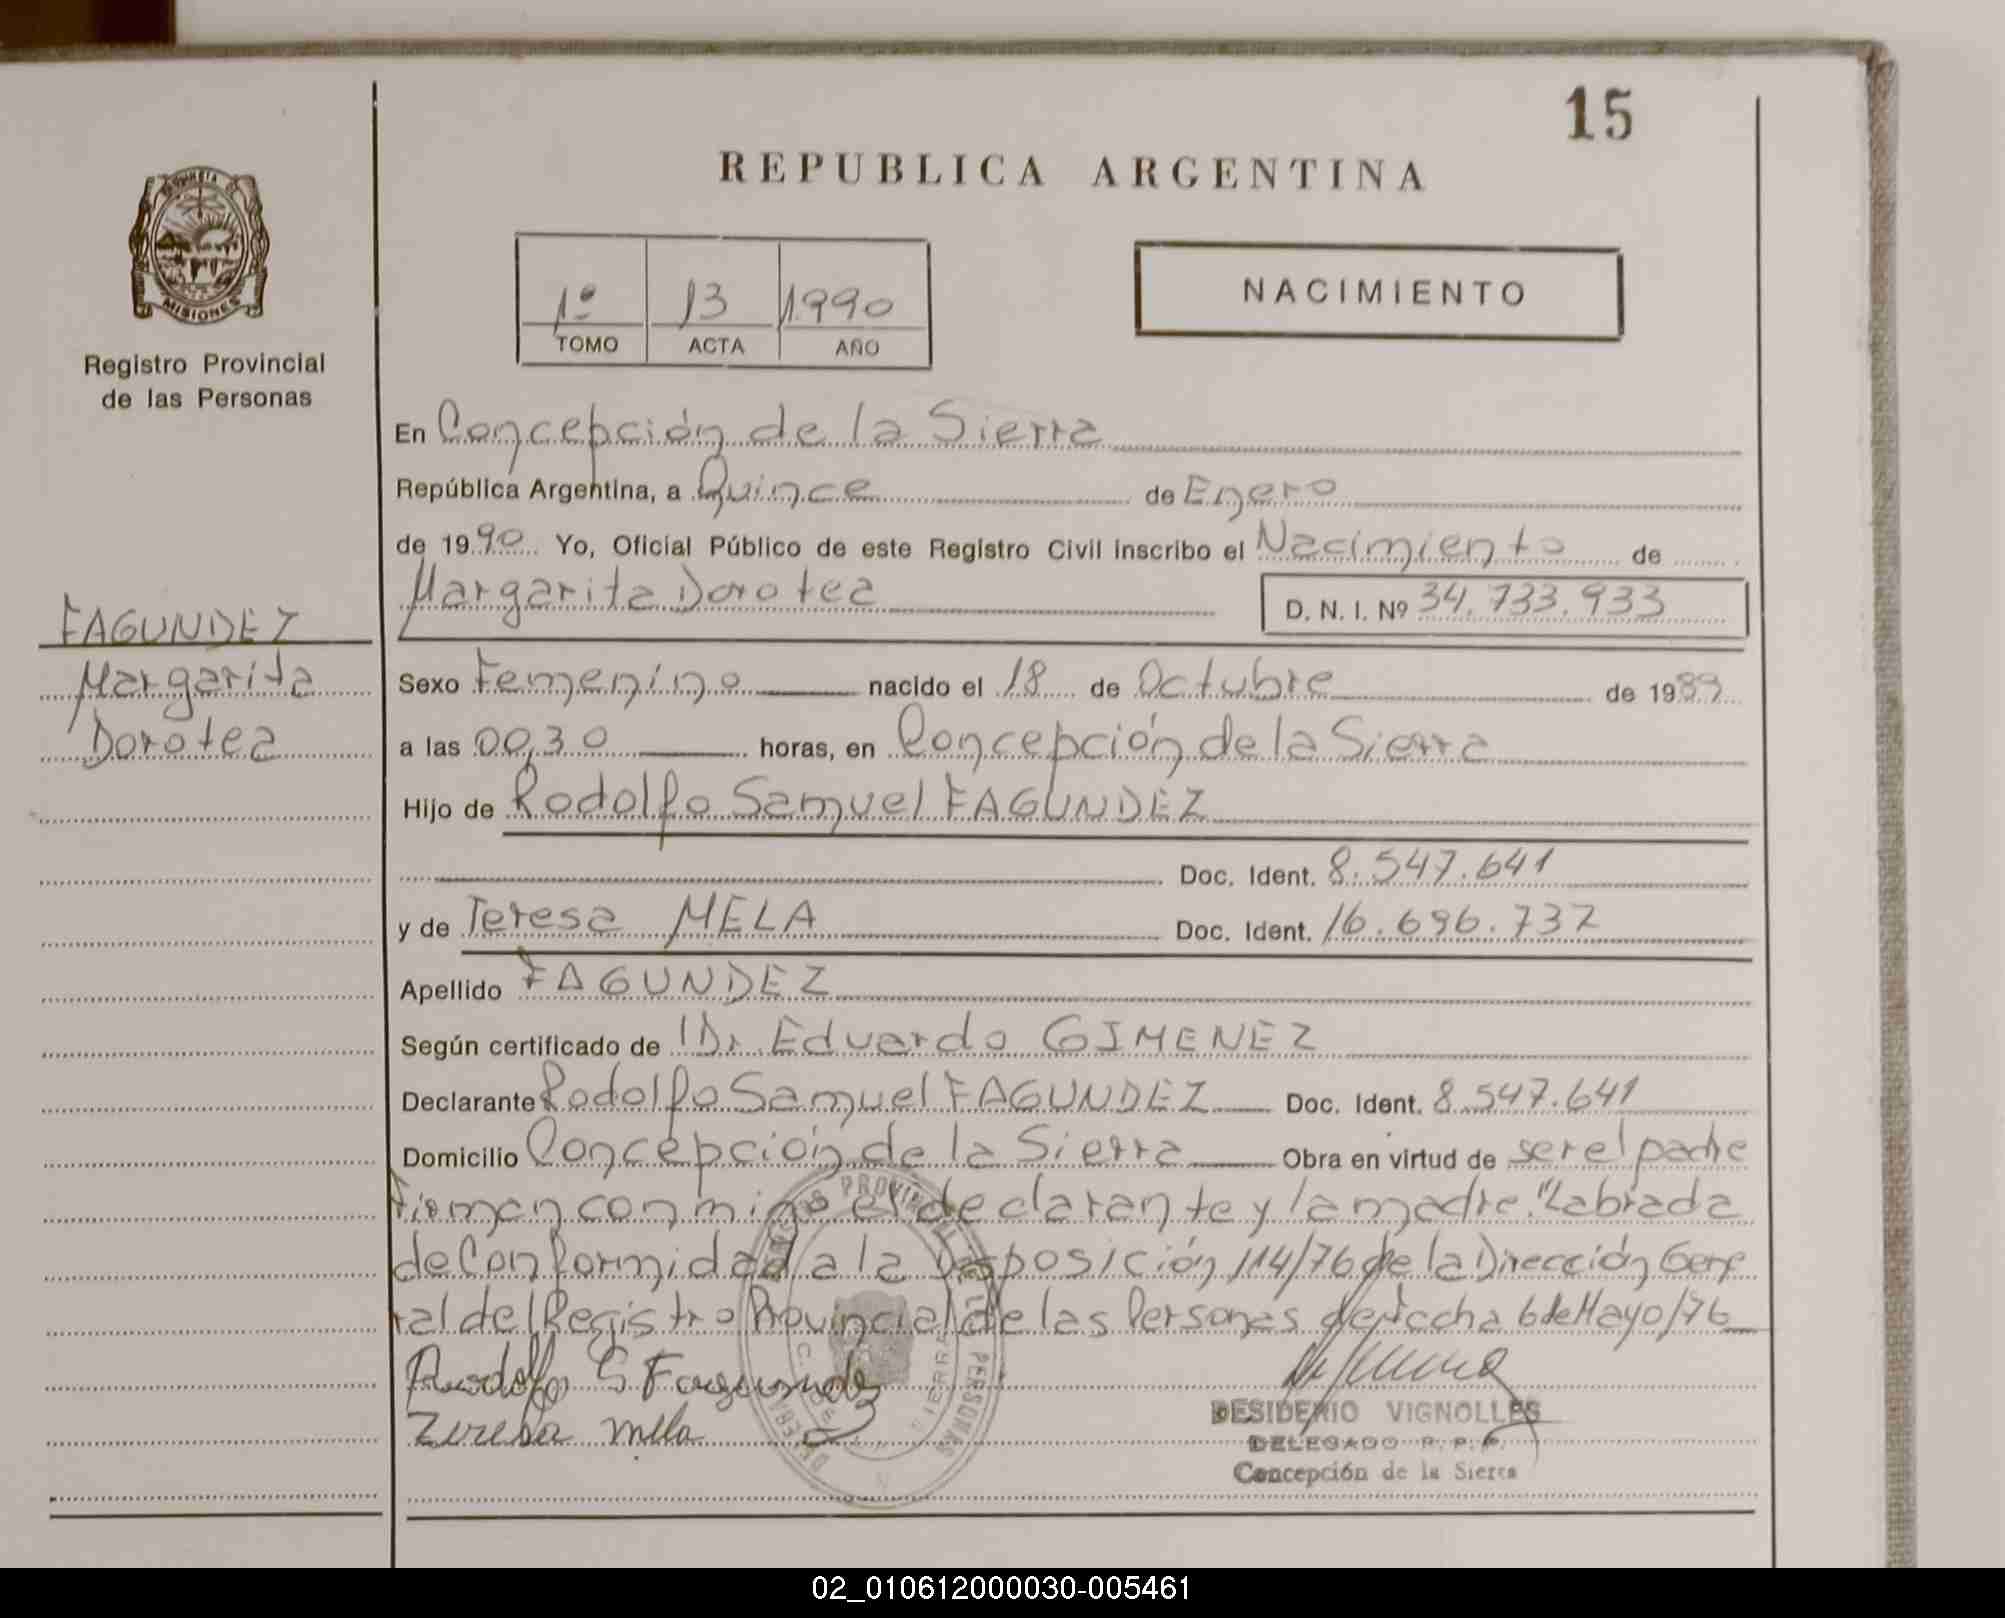 15
REPUBLICA ARGENTINA
MISIONES
Registro Provincial
de las Personas
1º 13 1990
TOMO ACTA AÑO
NACIMIENTO
En Concepción de la Sierra
República Argentina, a Quince de Enero
de 1990 Yo, Oficial Público de este Registro Civil inscribo el Nacimiento de
Margarita Dorotea D. N. I. Nº 34.733.933
FAGUNDEZ
Margarita
Dorotea
Sexo Femenino nacido el 18 de Octubre de 1989
a las 00,30 horas, en Concepción de la Sierra
Hijo de Rodolfo Samuel FAGUNDEZ
Doc. Ident. 8.547.641
y de Teresa MELA Doc. Ident. 16.696.737
Apellido FAGUNDEZ
Según certificado de Dr. Eduardo GIMENEZ
Declarante Rodolfo Samuel FAGUNDEZ Doc. Ident. 8.547.641
Domicilio Concepción de la Sierra Obra en virtud de ser el padre
Firman conmigo el declarante y la madre. "Labrada
de Conformidad a la Disposición 114/76 de la Dirección Gene
ral del Registro Provincial de las Personas de fecha 6 de Mayo/76
Rodolfo S Fagundez
Teresa mela
DESIDERIO VIGNOLLES
DELEGADO R. P. P.
Concepción de la Sierra
02_010612000030-005461